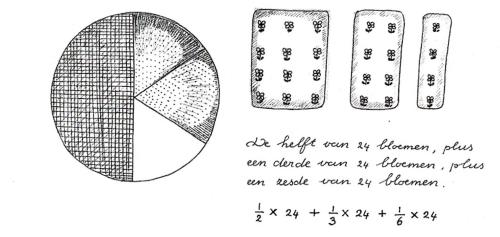 De helft van 24 bloemen, plus
een derde van 24 bloemen, plus
een zesde van 24 bloemen.
1/2 x 24 + 1/3 x 24 + 1/6 x 24